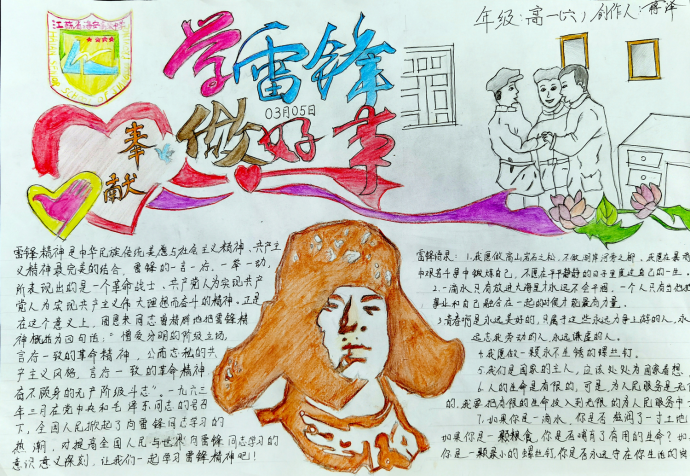 江苏省海安
年级:高一(六) 创作人:
学雷锋
03月05日
做好事
奉
献
雷锋精神是中华民族传统美德与社会主义精神、共产主
义精神最完美的结合,雷锋的一言一行,一举一动,
所表现出的是一个革命战士、共产党人为实现共产
党人为实现共产主义伟大理想而奋斗的精神,正是
在这个意义上,周恩来同志曾精辟地把雷锋精
神概括为四句话:“憎爱分明的阶级立场,
言行一致的革命精神,公而忘私的共
产主义风格,言行一致的革命精神
奋不顾身的无产阶级斗志”。一九六三
年三月在党中央和毛泽东同志的号召
下,全国人民掀起了向雷锋同志学习的
热潮,对提高全国人民与世界向雷锋同志学习的
意识意义深刻,让我们一起学习雷锋精神吧!
雷锋语录:1.我愿做高山岩石之松,不做河岸河旁之柳,我愿在暴
中艰苦斗争中锻炼自己,不愿在平平静静的日子里度过自己的一生。
2.一滴水只有放进大海里才永远不会干涸,一个人只有当他
事业和自己融合在一起的时候才能最有力量。
3.青春啊是永远美好的,只属于这些永远力争上游的人,永
远忘我劳动的人,永远谦虚的人。
4.我愿做一颗永不生锈的螺丝钉。
5.我们是国家的主人,应该处处为国家着想。
6.人的生命是有限的,可是,为人民服务是无
的,我要把有限的生命投入到无限的为人民服务中
7.如果你是一滴水,你是否滋润了一寸土地
如果你是一颗粮食,你是否哺育了有用的生命?如
你是一颗最小的螺丝钉,你是否永远守在你生活的岗